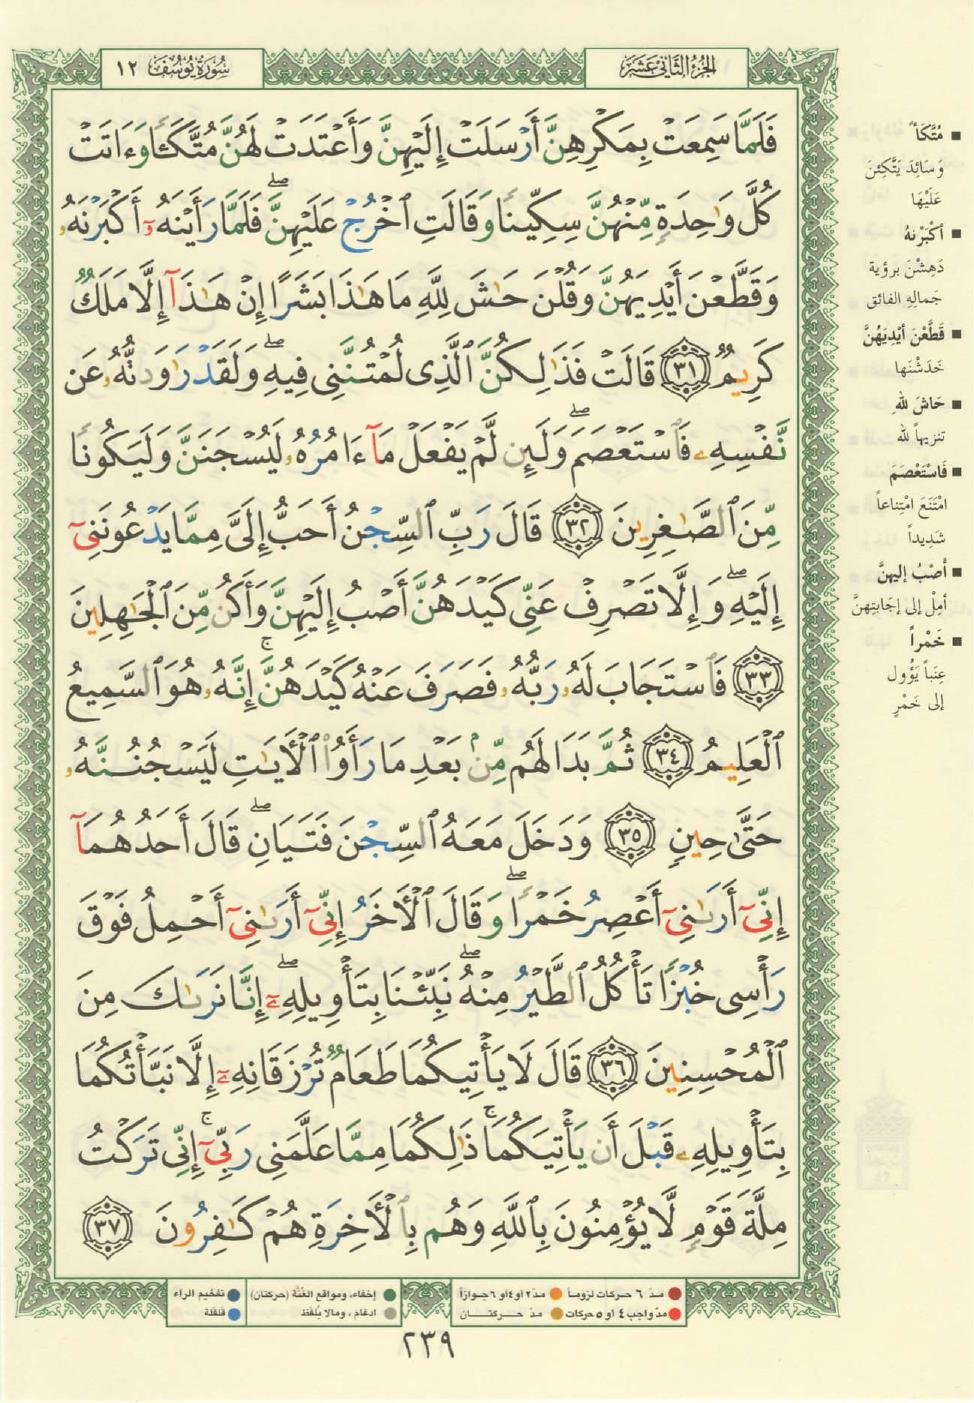 سُورَةُ يُوسُفَ ١٢
الجزء الثاني عشر
فَلَمَّا سَمِعَتْ بِمَكْرِهِنَّ أَرْسَلَتْ إِلَيْهِنَّ وَأَعْتَدَتْ لَهُنَّ مُتَّكَـًٔا وَءَاتَتْ
كُلَّ وَٰحِدَةٍ مِّنْهُنَّ سِكِّينًا وَقَالَتِ ٱخْرُجْ عَلَيْهِنَّ ۖ فَلَمَّا رَأَيْنَهُۥٓ أَكْبَرْنَهُۥ
وَقَطَّعْنَ أَيْدِيَهُنَّ وَقُلْنَ حَـٰشَ لِلَّهِ مَا هَـٰذَا بَشَرًا إِنْ هَـٰذَآ إِلَّا مَلَكٌ
كَرِيمٌ ٣١ قَالَتْ فَذَٰلِكُنَّ ٱلَّذِى لُمْتُنَّنِى فِيهِ ۖ وَلَقَدْ رَٰوَدتُّهُۥ عَن
نَّفْسِهِۦ فَٱسْتَعْصَمَ ۖ وَلَئِن لَّمْ يَفْعَلْ مَآ ءَامُرُهُۥ لَيُسْجَنَنَّ وَلَيَكُونًا
مِّنَ ٱلصَّـٰغِرِينَ ٣٢ قَالَ رَبِّ ٱلسِّجْنُ أَحَبُّ إِلَىَّ مِمَّا يَدْعُونَنِىٓ
إِلَيْهِ ۖ وَإِلَّا تَصْرِفْ عَنِّى كَيْدَهُنَّ أَصْبُ إِلَيْهِنَّ وَأَكُن مِّنَ ٱلْجَـٰهِلِينَ
٣٣ فَٱسْتَجَابَ لَهُۥ رَبُّهُۥ فَصَرَفَ عَنْهُ كَيْدَهُنَّ ۚ إِنَّهُۥ هُوَ ٱلسَّمِيعُ
ٱلْعَلِيمُ ٣٤ ثُمَّ بَدَا لَهُم مِّنۢ بَعْدِ مَا رَأَوُا۟ ٱلْـَٔايَـٰتِ لَيَسْجُنُنَّهُۥ
حَتَّىٰ حِينٍ ٣٥ وَدَخَلَ مَعَهُ ٱلسِّجْنَ فَتَيَانِ ۖ قَالَ أَحَدُهُمَآ
إِنِّىٓ أَرَىٰنِىٓ أَعْصِرُ خَمْرًا ۖ وَقَالَ ٱلْـَٔاخَرُ إِنِّىٓ أَرَىٰنِىٓ أَحْمِلُ فَوْقَ
رَأْسِى خُبْزًا تَأْكُلُ ٱلطَّيْرُ مِنْهُ ۖ نَبِّئْنَا بِتَأْوِيلِهِۦٓ ۖ إِنَّا نَرَىٰكَ مِنَ
ٱلْمُحْسِنِينَ ٣٦ قَالَ لَا يَأْتِيكُمَا طَعَامٌ تُرْزَقَانِهِۦٓ إِلَّا نَبَّأْتُكُمَا
بِتَأْوِيلِهِۦ قَبْلَ أَن يَأْتِيَكُمَا ۚ ذَٰلِكُمَا مِمَّا عَلَّمَنِى رَبِّىٓ ۚ إِنِّى تَرَكْتُ
مِلَّةَ قَوْمٍ لَّا يُؤْمِنُونَ بِٱللَّهِ وَهُم بِٱلْـَٔاخِرَةِ هُمْ كَـٰفِرُونَ ٣٧
■ مُتَّكَأً
وَسَائِدَ يَتَّكِئنَ
عَلَيْهَا
■ أَكْبَرْنهُ
دَهِشْنَ برؤية
جَمالِهِ الفائق
■ قَطَّعْنَ أيْدِيَهُنَّ
خَدَشْنَها
■ حَاشَ للهِ
تنزيهاً لله
■ فَاسْتَعْصَمَ
امْتَنَعَ امْتِناعاً
شَدِيداً
■ أَصْبُ إليهنَّ
أمِلْ إلى إجَابتِهنَّ
■ خَمْراً
عِنَباً يَؤُول
إلى خَمْرٍ
مدّ ٦ حركات لزوماً
مدّ ٢ او ٤ او ٦ جوازاً
إخفاء، ومواقع الغُنَّة (حركتان)
تفخيم الراء
مدّ واجب ٤ او ٥ حركات
مدّ حركتان
ادغام، ومالا يُلفَظ
قلقلة
٢٣٩